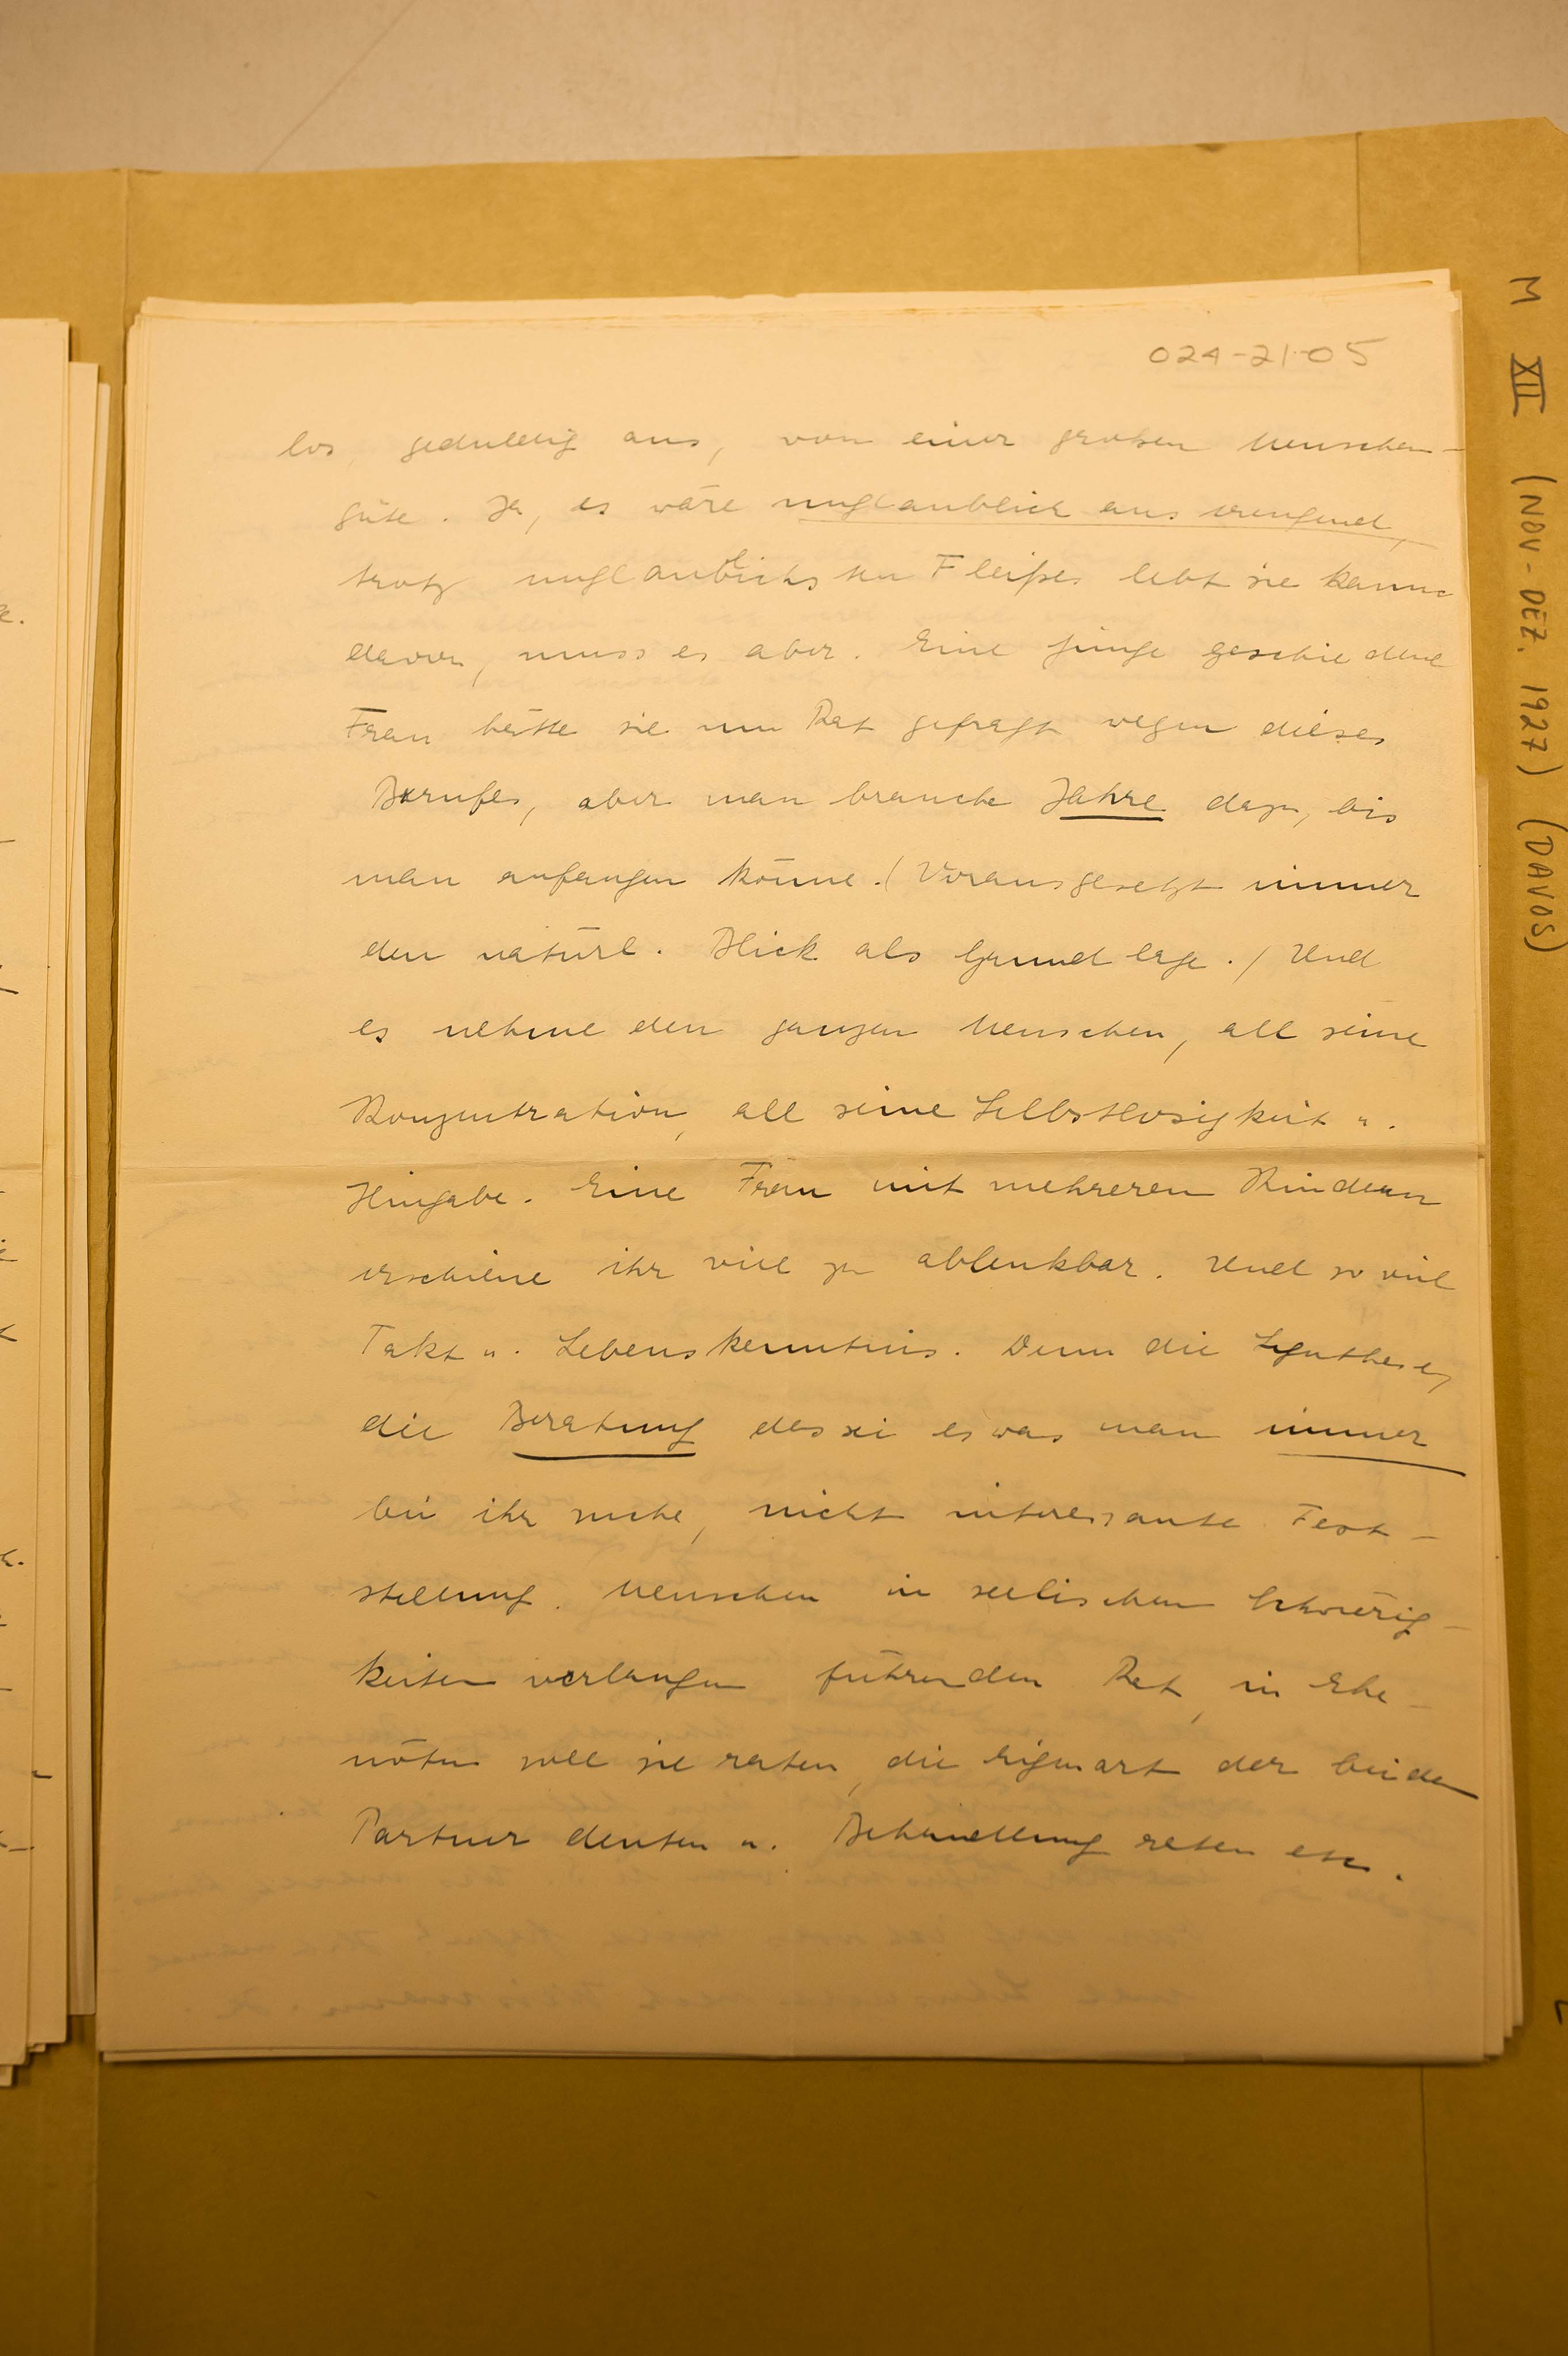 024-21-05
los, geduldig aus, von einer großen Menschen-
güte. Ja, es wäre unglaublich anstrengend,
trotz unglaublichsten Fleißes lebt sie kaum
davon, muss es aber. Eine junge geschiedene
Frau hätte sie um Rat gefragt wegen dieses
Berufes, aber man brauche Jahre dazu, bis
man anfangen könne. (Vorausgesetzt immer
den natürl. Blick als Grundlage.) Und
es nehme den ganzen Menschen, all seine
Konzentration, all seine Selbstlosigkeit u.
Hingabe. Eine Frau mit mehreren Kindern
erschiene ihr viel zu ablenkbar. Und so viel
Takt u. Lebenskenntnis. Denn die Synthese,
die Beratung das sei es was man immer
bei ihr suche, nicht interessante Fest-
stellung. Menschen in seelischen Schwierig-
keiten verlangen führenden Rat, in Ehe-
nöten soll sie raten, die Eigenart der beiden
Partner deuten u. Behandlung raten etc.
M XII (NOV - DEZ. 1927) (DAVOS)